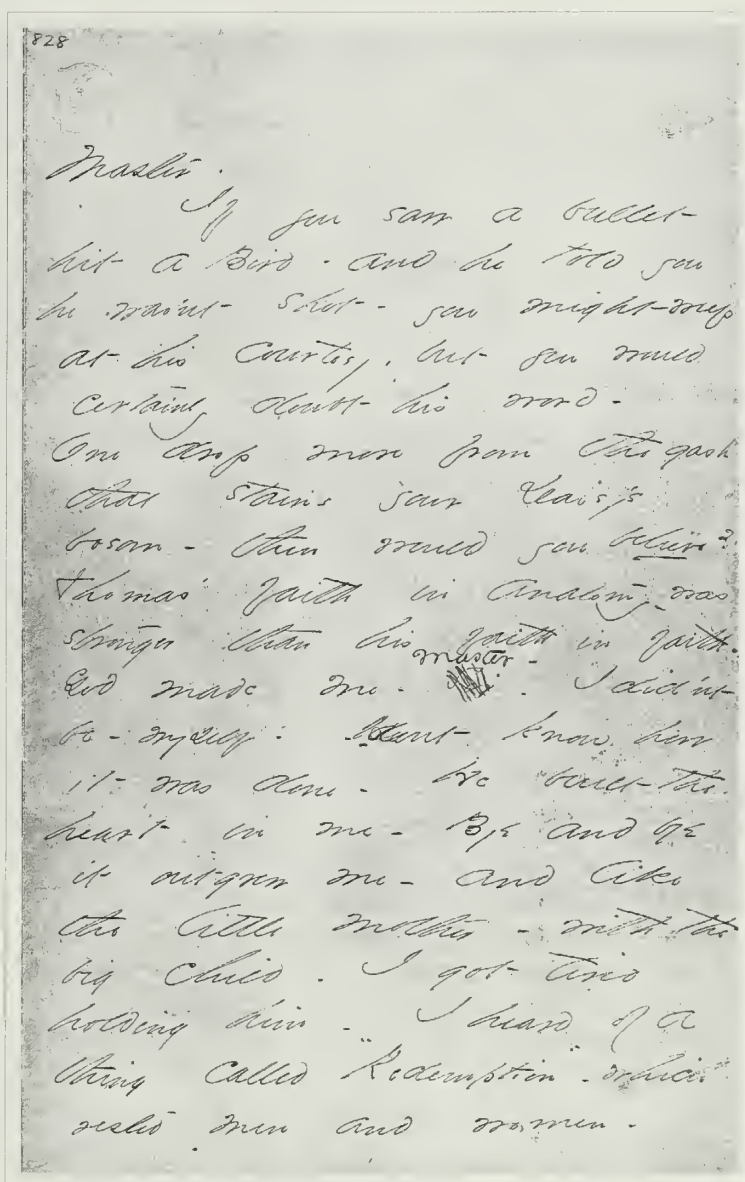 828
Master.
If you saw a bullet
hit a Bird - and he told you
he was'nt shot - you might weep
at his courtesy, but you would
certainly doubt his word -
One drop more from the gash
that stains your Daisy's
bosom - then would you believe?
Thomas' faith in Anatomy, was
stronger than his faith in faith.
Master -
God made me - . I did'nt
be - myself - know how
it was done - He built the
heart in me - Bye and bye
it outgrew me - and like
the little mother - with the
big child - I got tired
holding him - I heard of a
thing called "Redemption" - which
rested men and women -